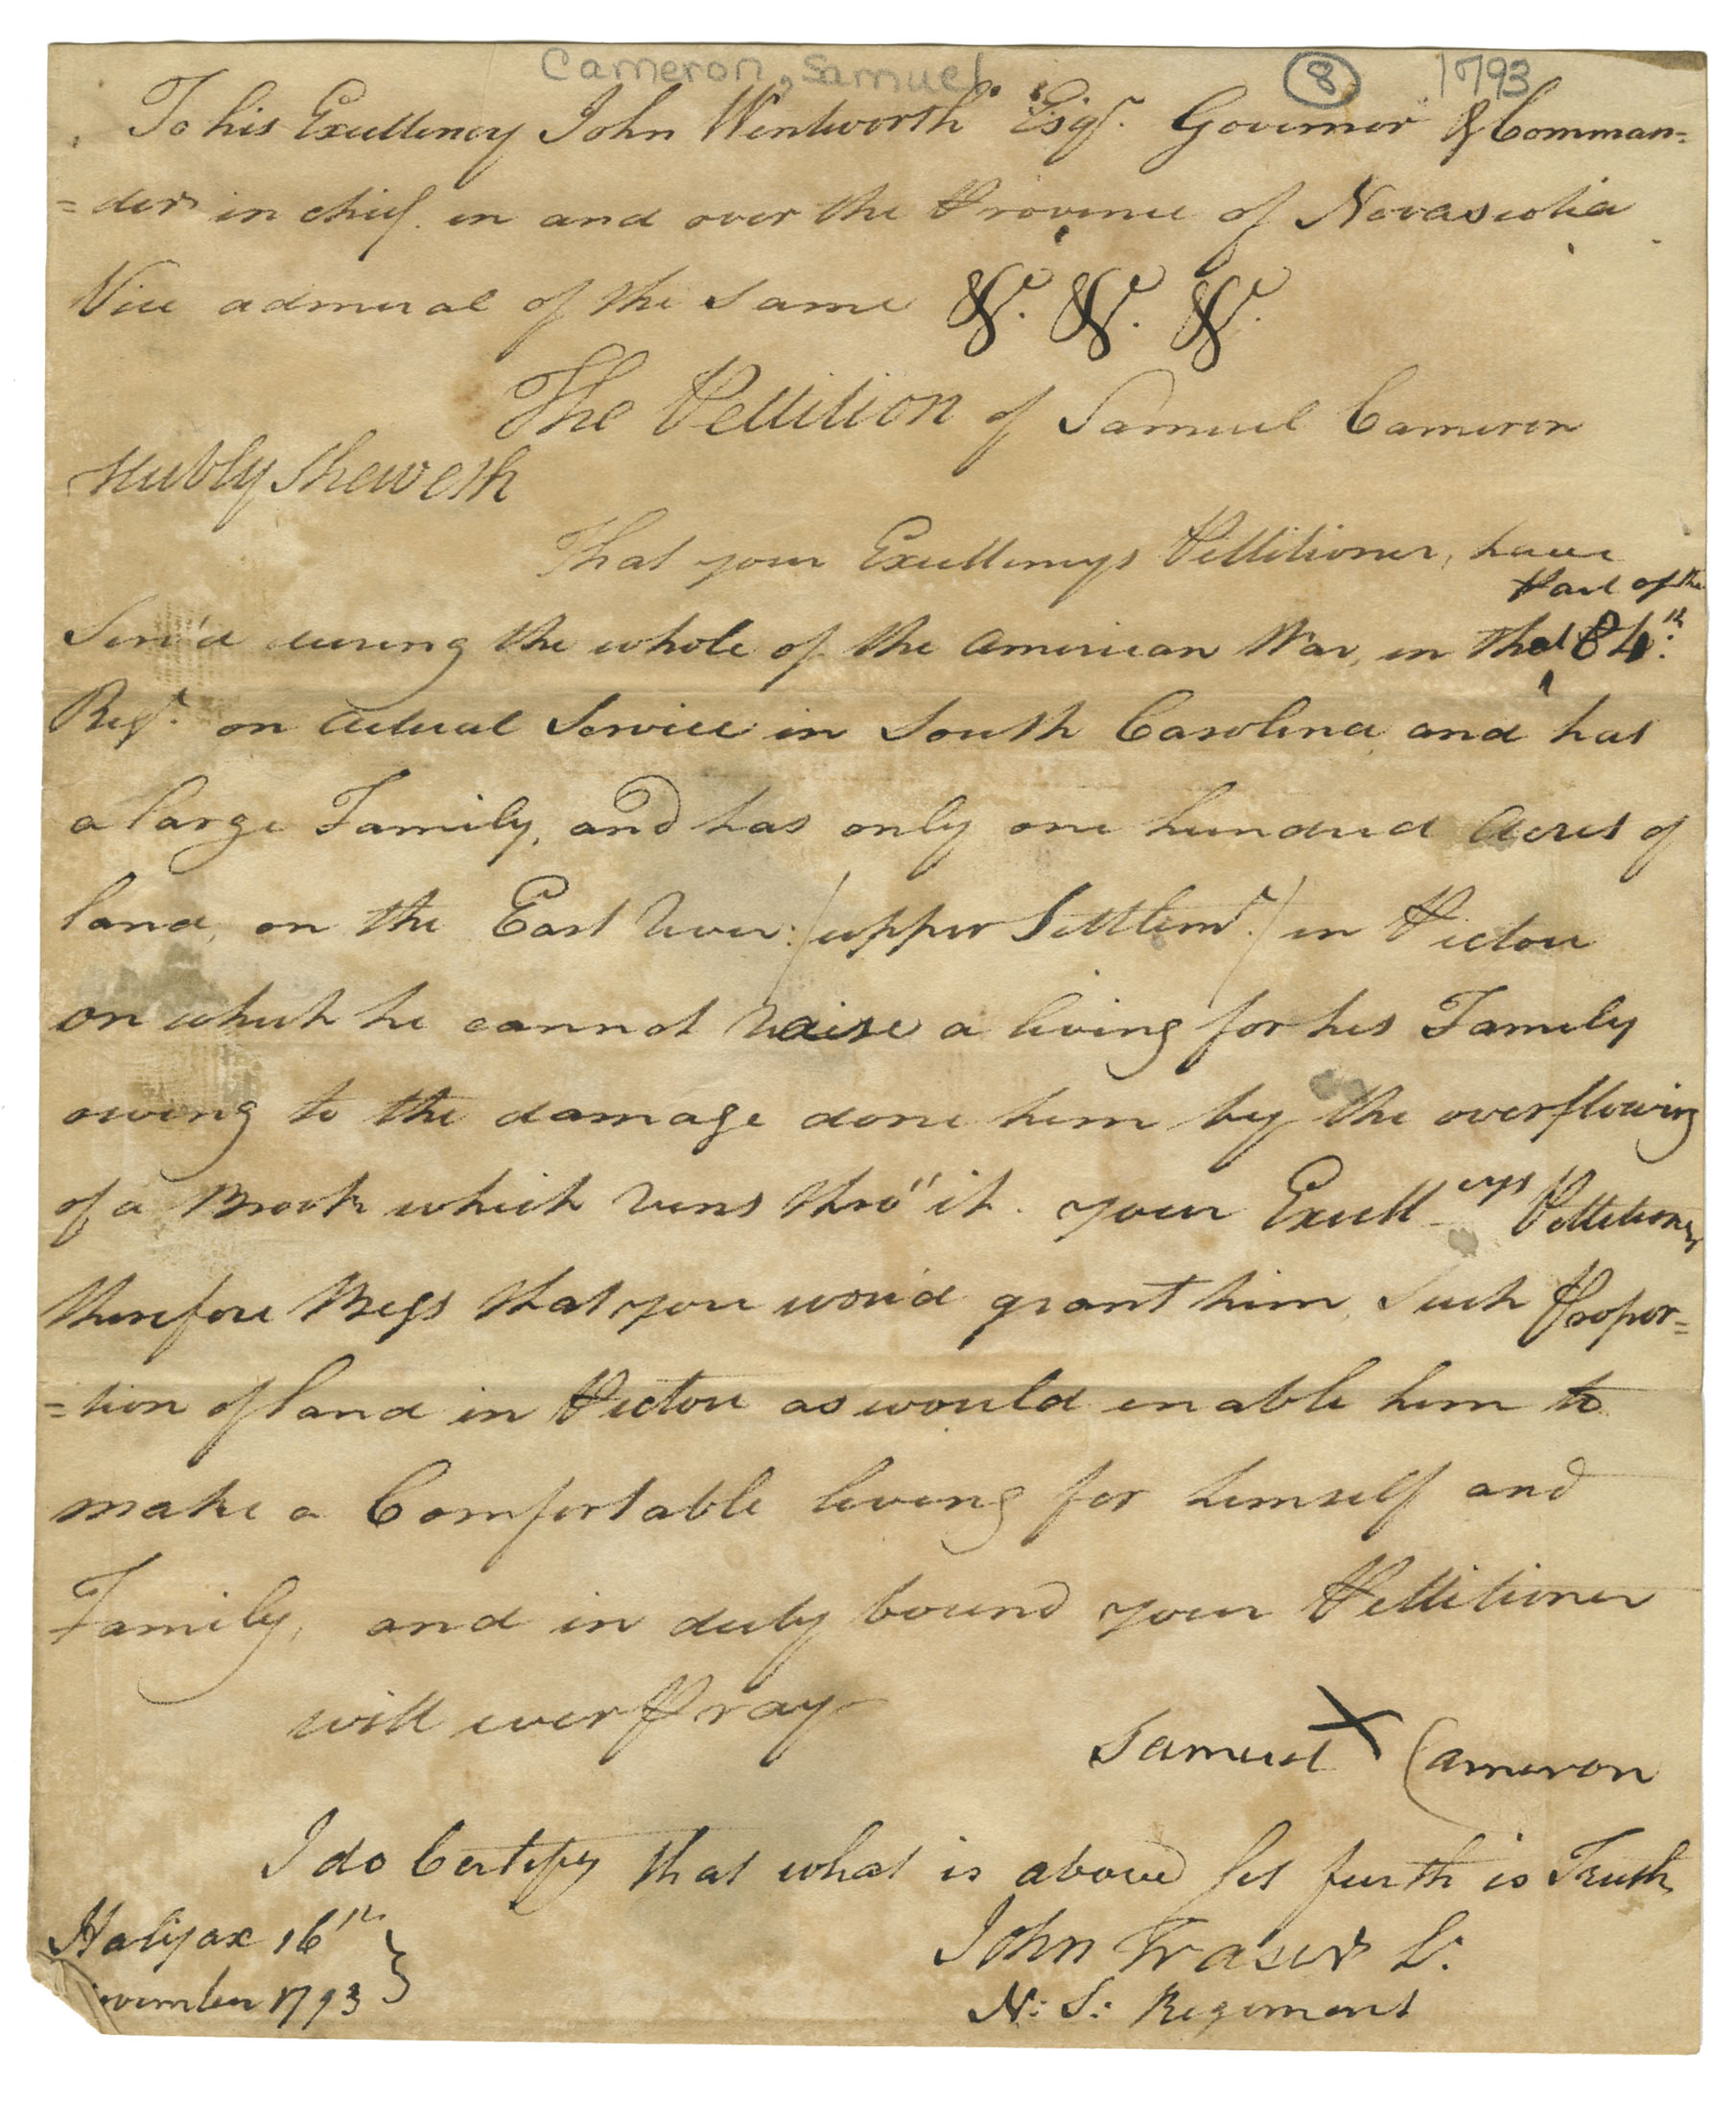 Cameron, Samuel 8 1793
To his Excellency John Wentworth Esqr. Governor & Comman=
=der in chief. in and over the Province of Novascotia
Vice admiral of the Same &c. &c. &c.
The Pettition of Samuel Cameron
Hubly Sheweth
That your Excellencys Pettitioner, have
Part of the
Serv'd during the whole of the American War, in that 84th.
Regt. on Actual Service in South Carolina and has
a large Family, and has only one hundred Acres of
land, on the East River: /upper Settlemt./ in Pictou
on which he cannot Raise a living for his Family
owing to the damage done him by the overflowing
of a Brook which runs thro" it. your Excellencys Pettitioner
therefore Begs that you wou'd grant him Such Propor=
=tion of land in Pictou as would enable him to
make a Comfortable living for himself and
Family, and in duty bound your Pettitioner
will ever Pray
Samuel X Cameron
I do Certify that what is above Set furth is Truth
John Fraser C.
N: S: Regiment
Halifax 16th
ovember 1793 }